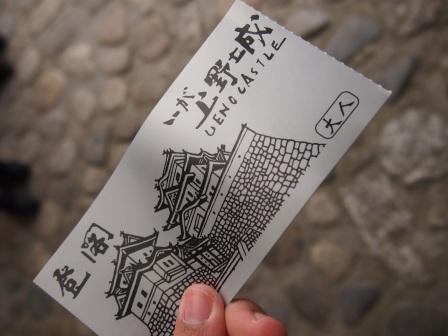 いが上野城
UENO CASTLE
大人
登閣